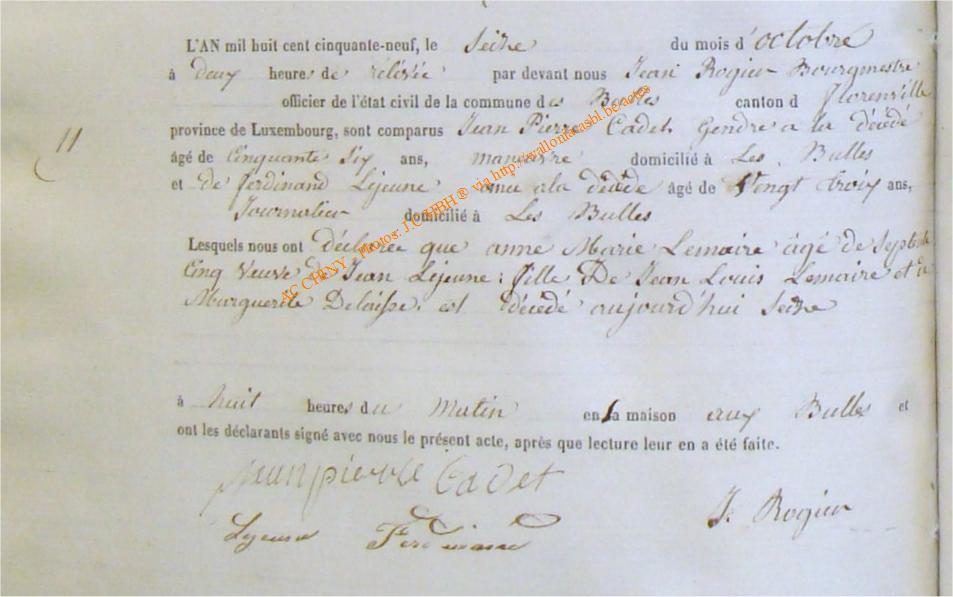 L'AN mil huit cent cinquante-neuf, le Seize du mois d'octobre
à deux heures de rélévée par devant nous Jean Rogier Bourgmestre
officier de l'état civil de la commune des Bulles canton d Florenville
11 province de Luxembourg, sont comparus Jean Pierre Cadet Gendre a la décédé
âgé de Cinquante Six ans, manoeuvre domicilié à Les Bulles
et de Ferdinand Lejeune a la décédé âgé de Vingt troix ans,
Journalier domicilié à Les Bulles
Lesquels nous ont déclarée que anne Marie Lemaire âgé de Septente
Cinq Veuve De Jean Lejeune, fille De Jean Louis Lemaire et de
Marguerite Delaisse est décédé aujourd'hui Seize
à huit heures du Matin en sa maison aux Bulles et
ont les déclarants signé avec nous le présent acte, après que lecture leur en a été faite.
jean pierre Cadet
J. Rogier
Lejeune Ferdinand
AC CHINY - Photos: J.C. HBH ® via http://wallonia-asbl.be/actes